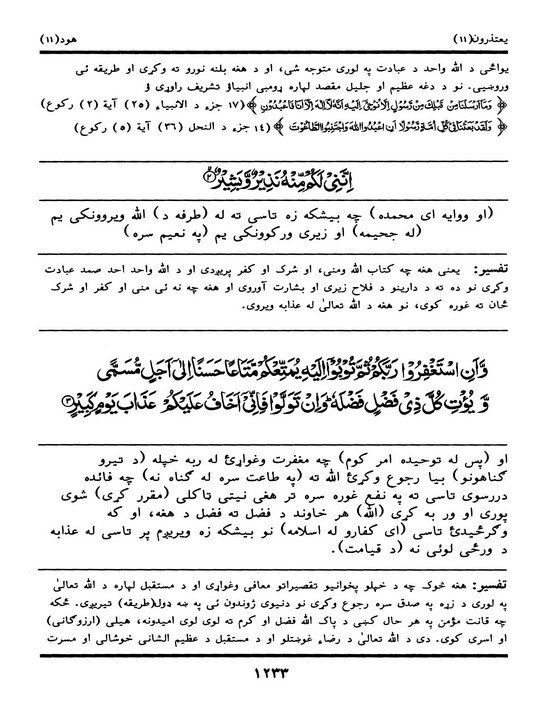 يعتذرون(١١) هود(١١)
يواځي د الله واحد د عبادت په لوري متوجه شي، او د هغه بلنه نورو ته وكړي او طريقه ئي
وروښيي. نو د دغه عظيم او جليل مقصد لپاره ړومبى انبياؤ تشريف راوړى ؤ
﴿ وَمَا اَرْسَلْنَا مِنْ قَبْلِكَ مِنْ رَّسُوْلٍ اِلَّا نُوْحِىْٓ اِلَيْهِ اَنَّهٗ لَآ اِلٰهَ اِلَّآ اَنَا فَاعْبُدُوْنِ ﴾ (١٧ جزء د الانبياء (٢٥) آية (٢) ركوع)
﴿ وَلَقَدْ بَعَثْنَا فِىْ كُلِّ اُمَّةٍ رَّسُوْلًا اَنِ اعْبُدُوا اللهَ وَاجْتَنِبُوا الطَّاغُوْتَ ﴾ (١٤ جزء د النحل (٣٦) آية (٥) ركوع)
اِنَّنِىْ لَكُمْ مِّنْهُ نَذِيْرٌ وَّبَشِيْرٌ ﴿٢﴾
(او ووايه اى محمده) چه بيشكه زه تاسي ته له (طرفه د) الله ويروونكى يم
(له جحيمه) او زيرى وركوونكى يم (په نعيم سره)
تفسير: يعنى هغه چه كتاب الله ومني، او شرك او كفر پريږدي او د الله واحد احد صمد عبادت
وكړي نو ده ته د دارينو د فلاح زيرى او بشارت آوروي او هغه چه نه ئي مني او كفر او شرك
ځان ته غوره كوي، نو هغه د الله تعالىٰ له عذابه ويروي.
وَّاَنِ اسْتَغْفِرُوْا رَبَّكُمْ ثُمَّ تُوْبُوْٓا اِلَيْهِ يُمَتِّعْكُمْ مَّتَاعًا حَسَنًا اِلٰٓى اَجَلٍ مُّسَمًّى
وَّيُؤْتِ كُلَّ ذِىْ فَضْلٍ فَضْلَهٗ ؕ وَاِنْ تَوَلَّوْا فَاِنِّىْٓ اَخَافُ عَلَيْكُمْ عَذَابَ يَوْمٍ كَبِيْرٍ ﴿٣﴾
او (پس له توحيده امر كوم) چه مغفرت وغواړئ له ربه خپله (د تيرو
ګناهونو) بيا رجوع وكړئ الله ته (په طاعت سره له ګناه نه) چه فائده
دررسوي تاسي ته په نفع غوره سره تر هغي نيتي ټاكلي (مقرر كړى) شوي
پوري او ور به كړي (الله) هر خاوند د فضل ته فضل د هغه، او كه
وګرځيدئ تاسي (اى كفارو له اسلامه) نو بيشكه زه ويريږم پر تاسي له عذابه
د ورځي لوئي نه (د قيامت).
تفسير: هغه څوك چه د خپلو پخوانيو تقصيراتو معافي وغواړي او د مستقبل لپاره د الله تعالىٰ
په لوري د زړه په صدق سره رجوع وكړي نو دنيوي ژوندون ئي په ښه ډول(طريقه) تيريږي. ځكه
چه قانت مؤمن په هر حال كښي د پاك الله فضل او كرم ته لوى لوى اميدونه، هيلي (ارزوګاني)
او اسرى كوي. دى د الله تعالىٰ د رضاء غوښتلو او د مستقبل د عظيم الشاني خوشالي او مسرت
١٢٣٣